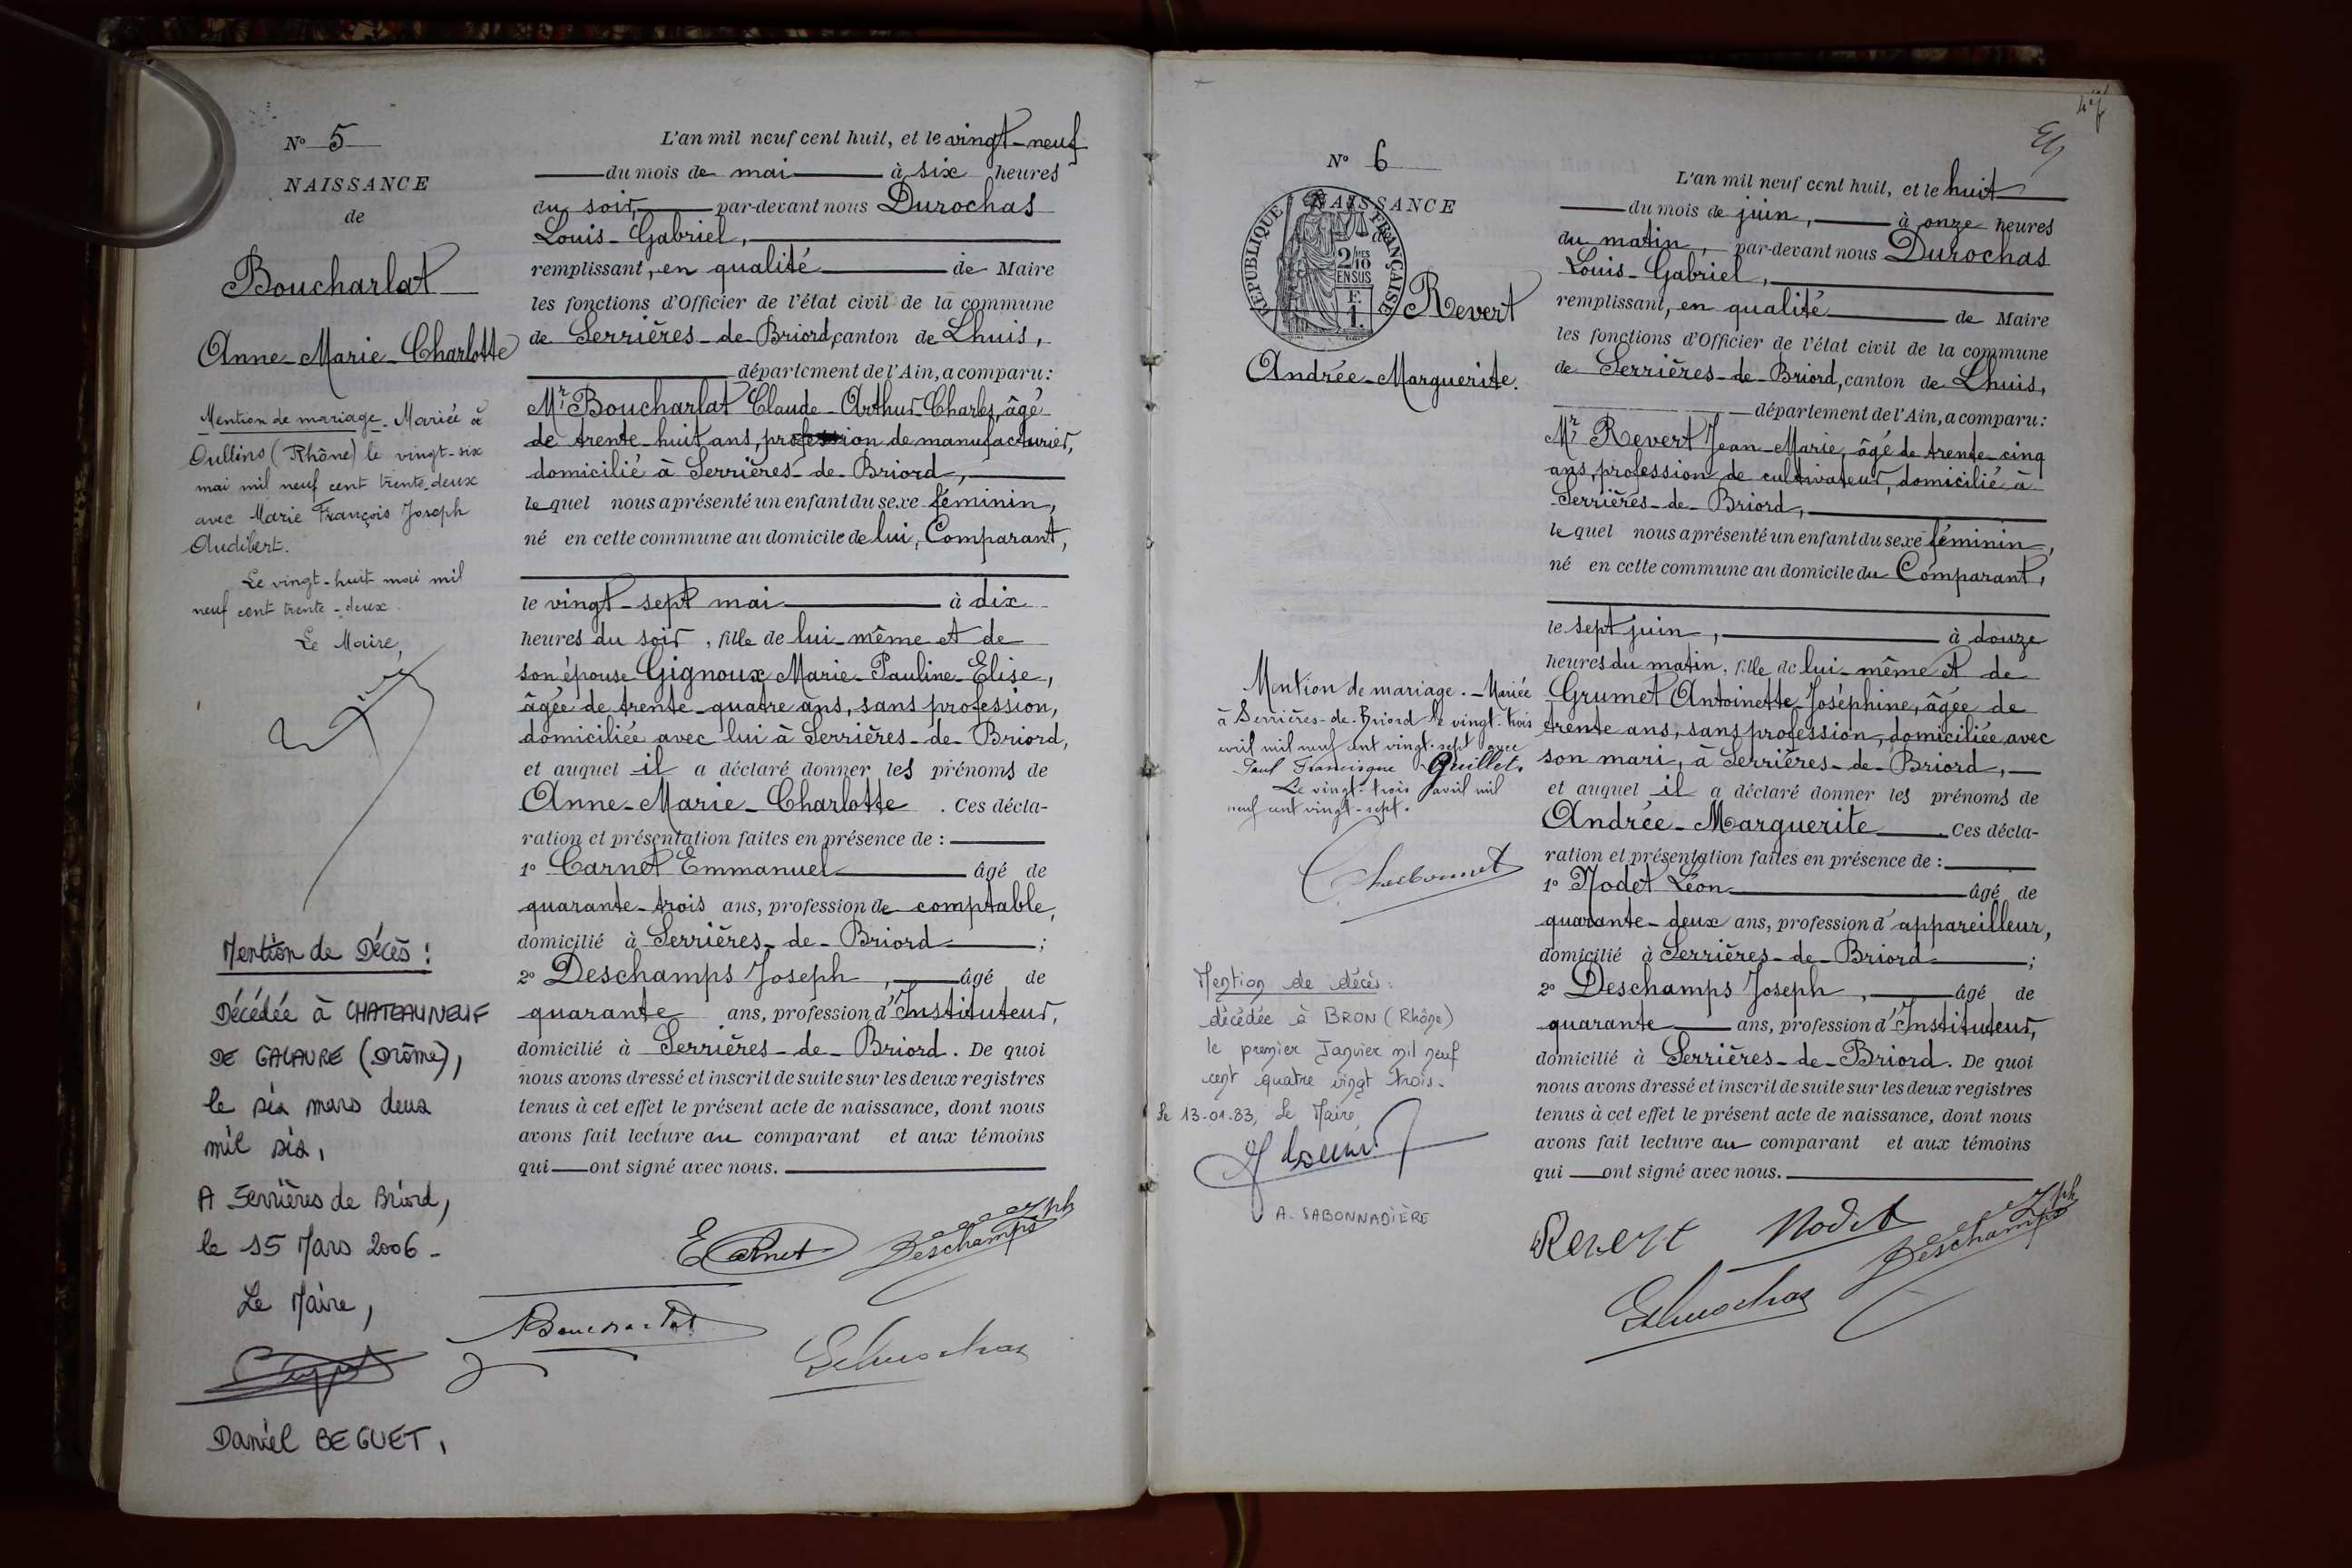 N° 5
NAISSANCE
de
Boucharlat
Anne-Marie-Charlotte
Mention de mariage. Mariée à
Oullins (Rhône) le vingt-six
mai mil neuf cent trente-deux
avec Marie François Joseph
Audibert.
Le vingt-huit mai mil
neuf cent trente-deux.
Le Maire,
Mention de Décès :
Décédée à CHATEAUNEUF
DE GALAURE (Drôme),
le six mars deux
mil six,
A Serrières de Briord,
le 15 Mars 2006 -
Le Maire,
Daniel BEGUET,
L'an mil neuf cent huit, et le vingt-neuf
du mois de mai à six heures
du soir, par-devant nous Durochas
Louis-Gabriel,
remplissant, en qualité de Maire
les fonctions d'Officier de l'état civil de la commune
de Serrières-de-Briord, canton de Lhuis,
département de l'Ain, a comparu :
Mr Boucharlat Claude-Arthur-Charles, âgé
de trente-huit ans, profession de manufacturier,
domicilié à Serrières-de-Briord,
lequel nous a présenté un enfant du sexe féminin,
né en cette commune au domicile de lui, Comparant,
le vingt-sept mai à dix
heures du soir, fille de lui-même et de
son épouse Gignoux Marie-Pauline-Elise,
âgée de trente-quatre ans, sans profession,
domiciliée avec lui à Serrières-de-Briord,
et auquel il a déclaré donner les prénoms de
Anne-Marie-Charlotte. Ces décla-
ration et présentation faites en présence de :
1° Carnet Emmanuel âgé de
quarante-trois ans, profession de comptable,
domicilié à Serrières-de-Briord ;
2° Deschamps Joseph, âgé de
quarante ans, profession d'Instituteur,
domicilié à Serrières-de-Briord. De quoi
nous avons dressé et inscrit de suite sur les deux registres
tenus à cet effet le présent acte de naissance, dont nous
avons fait lecture au comparant et aux témoins
qui ont signé avec nous.
E Carnet Deschamps Jph
Boucharlat
N° 6
NAISSANCE
de
RÉPUBLIQUE FRANÇAISE
2/10 MES
EN SUS
F.
1.
Revert
Andrée-Marguerite.
Mention de mariage. - Mariée
à Serrières-de-Briord le vingt-trois
avril mil neuf cent vingt-sept avec
Paul Francisque Quillet.
Le vingt-trois avril mil
neuf cent vingt-sept.
Mention de décés :
décédée à BRON (Rhône)
le premier Janvier mil neuf
cent quatre vingt trois.
Le 13-01-83, Le Maire,
A. SABONNADIÈRE
L'an mil neuf cent huit, et le huit
du mois de juin, à onze heures
du matin, par-devant nous Durochas
Louis-Gabriel,
remplissant, en qualité de Maire
les fonctions d'Officier de l'état civil de la commune
de Serrières-de-Briord, canton de Lhuis,
département de l'Ain, a comparu :
Mr Revert Jean-Marie, âgé de trente-cinq
ans, profession de cultivateur, domicilié à
Serrières-de-Briord,
lequel nous a présenté un enfant du sexe féminin,
né en cette commune au domicile du Comparant,
le sept juin, à douze
heures du matin, fille de lui-même et de
Grumet Antoinette-Joséphine, âgée de
trente ans, sans profession, domiciliée avec
son mari, à Serrières-de-Briord,
et auquel il a déclaré donner les prénoms de
Andrée-Marguerite. Ces décla-
ration et présentation faites en présence de :
1° Nodet Léon âgé de
quarante-deux ans, profession d'appareilleur,
domicilié à Serrières-de-Briord ;
2° Deschamps Joseph, âgé de
quarante ans, profession d'Instituteur,
domicilié à Serrières-de-Briord. De quoi
nous avons dressé et inscrit de suite sur les deux registres
tenus à cet effet le présent acte de naissance, dont nous
avons fait lecture au comparant et aux témoins
qui ont signé avec nous.
Revert Nodet Deschamps Jph